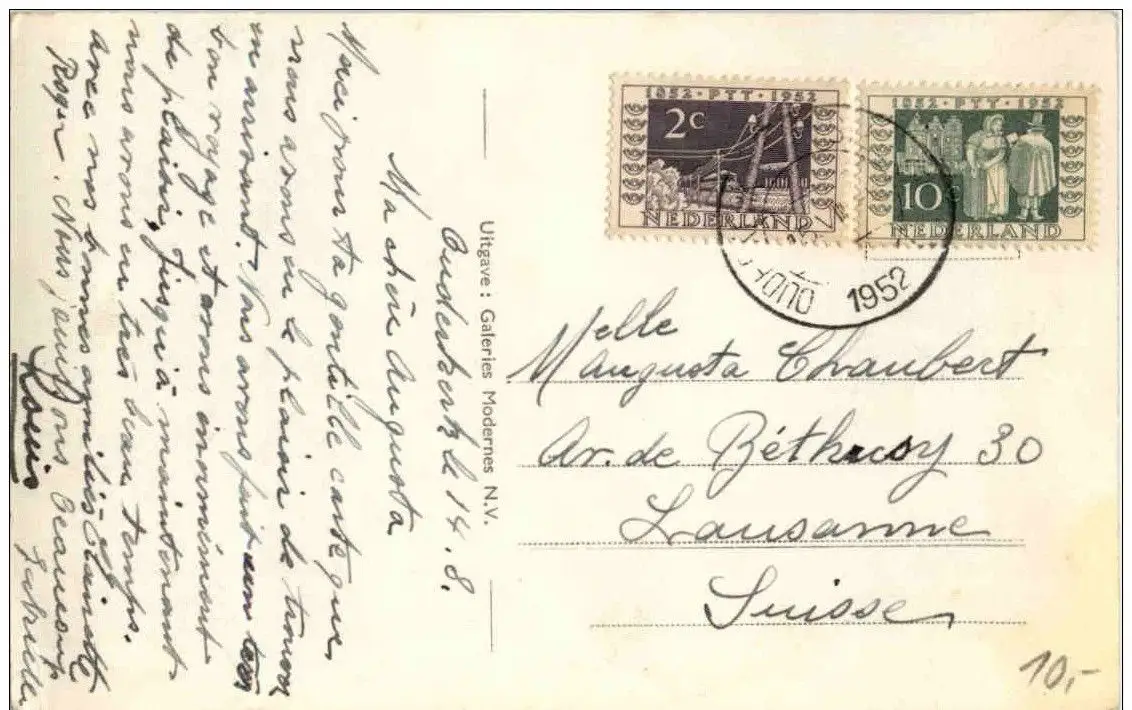 Ouderkerk le 14.8.
Ma chère Augusta
Merci pour ta gentille carte que
nous avons eu le plaisir de trouver
en arrivant. Nous avons fait un très
bon voyage et avons énormément
de plaisir, jusqu'à maintenant
nous avons eu très beau temps.
avec nos bonnes amitiés
Roger. Nous jouissons beaucoup
Louis
Uitgave: Galeries Modernes N.V.
1852 · PTT · 1952
2c
NEDERLAND
1852 · PTT · 1952
10c
NEDERLAND
1952
Melle
Augusta Chaubert
Av. de Béthusy 30
Lausanne
Suisse
10,-